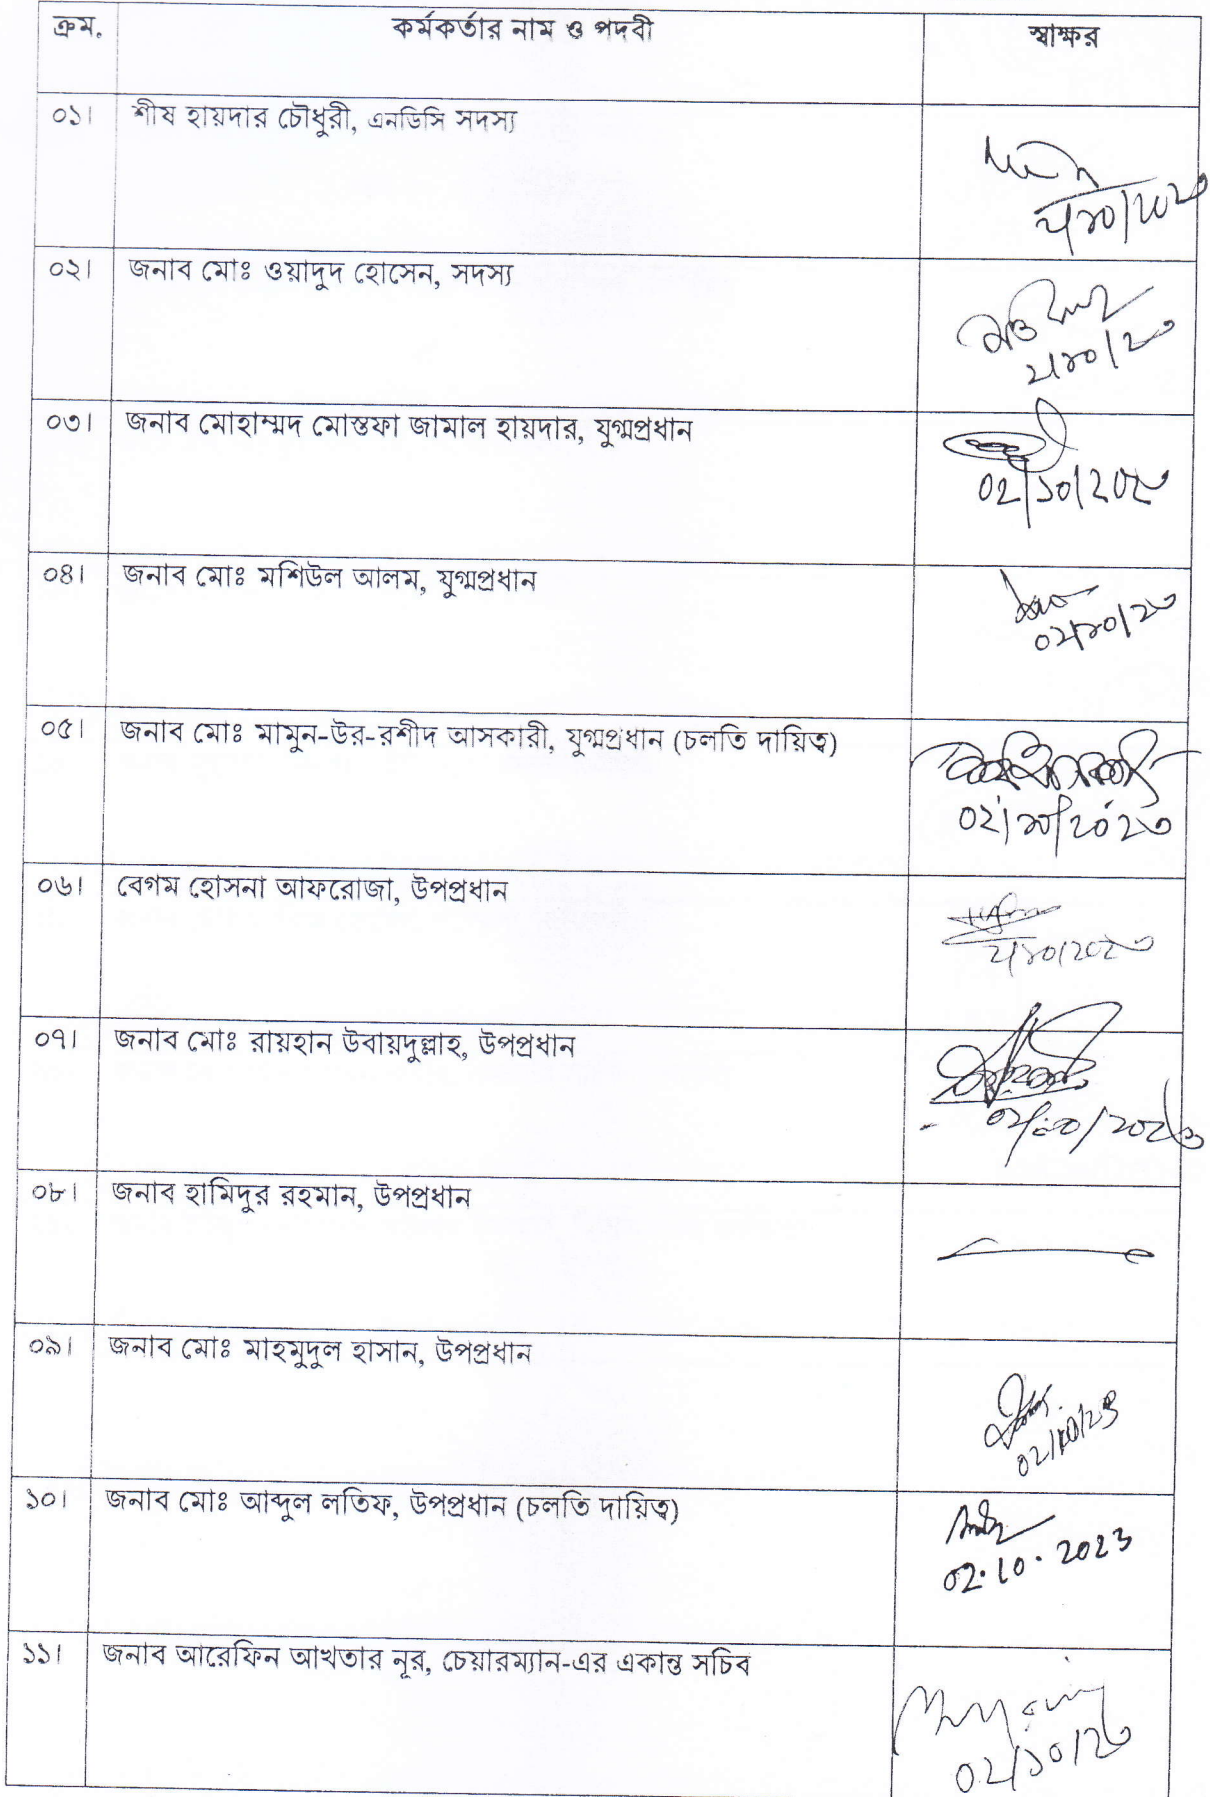 ক্রম. কর্মকর্তার নাম ও পদবী স্বাক্ষর
০১। শীষ হায়দার চৌধুরী, এনডিসি সদস্য
২/১০/২০২৩
০২। জনাব মোঃ ওয়াদুদ হোসেন, সদস্য
২/১০/২৩
০৩। জনাব মোহাম্মদ মোস্তফা জামাল হায়দার, যুগ্মপ্রধান
০২/১০/২০২৩
০৪। জনাব মোঃ মশিউল আলম, যুগ্মপ্রধান
০২/১০/২৩
০৫। জনাব মোঃ মামুন-উর-রশীদ আসকারী, যুগ্মপ্রধান (চলতি দায়িত্ব)
০২/১০/২০২৩
০৬। বেগম হোসনা আফরোজা, উপপ্রধান
২/১০/২০২৩
০৭। জনাব মোঃ রায়হান উবায়দুল্লাহ, উপপ্রধান
০২/১০/২০২৩
০৮। জনাব হামিদুর রহমান, উপপ্রধান
০৯। জনাব মোঃ মাহমুদুল হাসান, উপপ্রধান
02/10/23
১০। জনাব মোঃ আব্দুল লতিফ, উপপ্রধান (চলতি দায়িত্ব)
02.10.2023
১১। জনাব আরেফিন আখতার নূর, চেয়ারম্যান-এর একান্ত সচিব
০২/১০/২৩